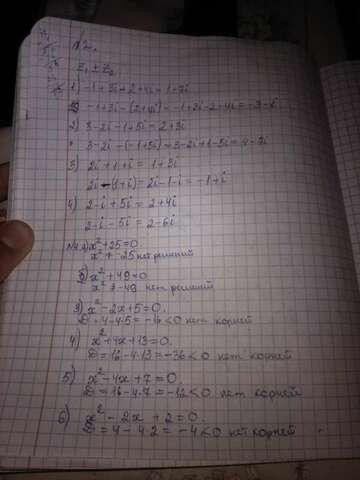 №2.
z₁ ± z₂
1) -1+3i+2+4i=1+7i
-1+3i-(2+4i)=-1+3i-2-4i=-3-i
2) 3-2i-1+5i=2+3i
3-2i-(-1+5i)=3-2i+1-5i=4-7i
3) 2i+1+i=1+3i
2i-(1+i)=2i-1-i=-1+i
4) 2-i+5i=2+4i
2-i-5i=2-6i
№4. 1) x²+25=0
x² ≠ -25 нет решений
2) x²+49=0
x² ≠ -49 нет решений
3) x²-2x+5=0.
D=4-4·5=-16<0 нет корней
4) x²+4x+13=0.
D=16-4·13=-36<0 нет корней
5) x²-4x+7=0.
D=16-4·7=-12<0 нет корней
6) x²-2x+2=0.
D=4-4·2=-4<0 нет корней